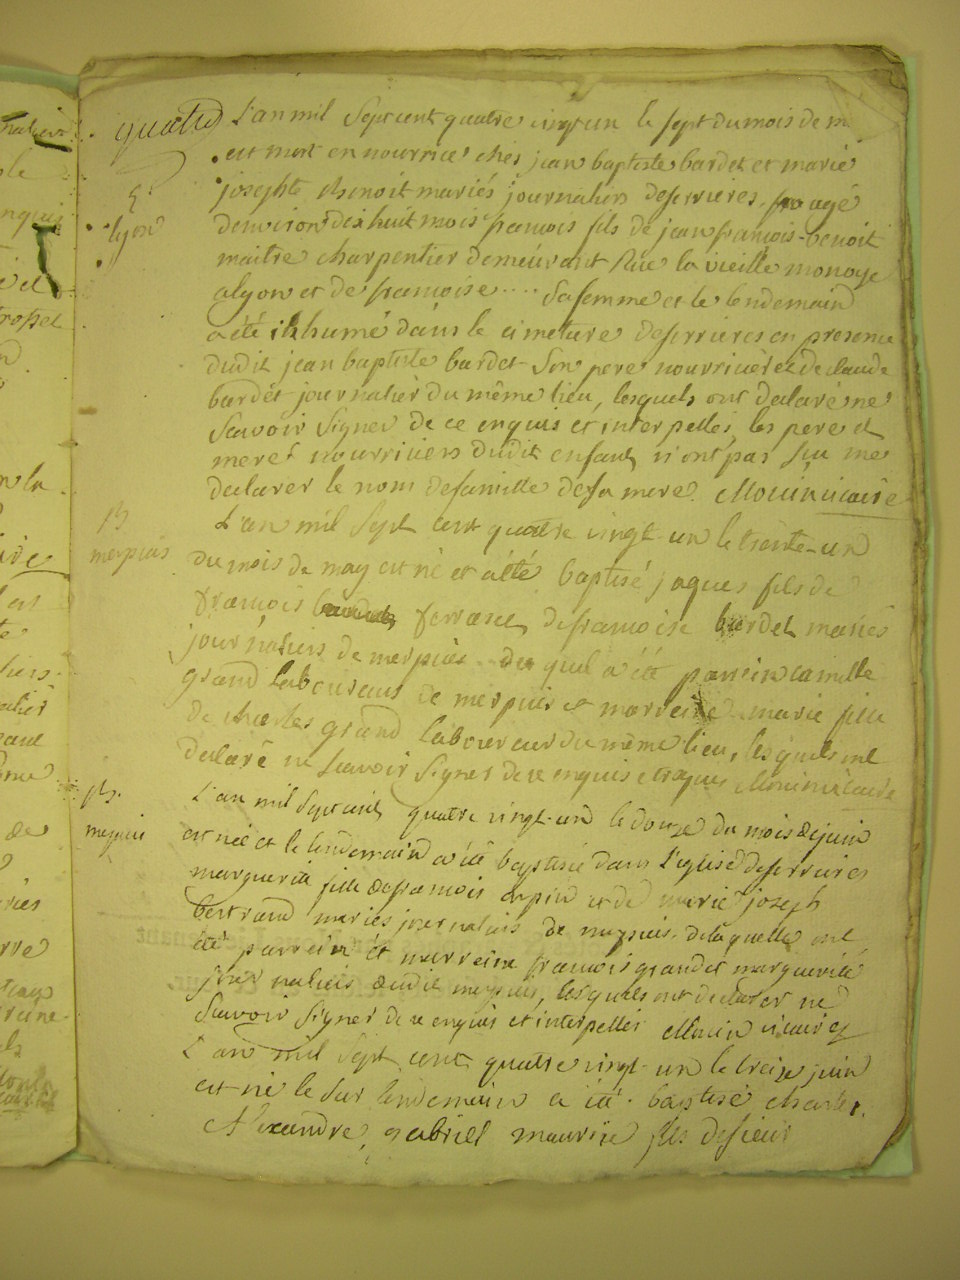 quatre
L'an mil Sept cent quatre vingt un le sept du mois de m
est mort en nourrice chés jean baptiste bardet et marie
josephte thenoit mariés journaliers deserrieres, agé
denviron dix huit mois françois fils de jean françois benoit
S.
lyon
maitre charpentier demeurant Rue la vieille monoye
alyon et de françoise .... Sa femme et le lendemain
a été inhumé dans le cimetiere deserrieres en presence
dudit jean baptiste bardet Son pere nourricier et de claude
bardet journalier du même lieu, lesquels ont declaré ne
Scavoir Signer de ce enquis et interpellés, les pere et
mere nourriciers dudit enfant n'ont pas Scu me
declarer le nom defamille desa mere. Monin vicaire
L'an mil Sept cent quatre vingt un le trente-un
mepieu
du mois de may est né et a été baptisé jaques fils de
françois ferrand, defrançoise bardet mariés
journaliers de mepieu duquel a été parrein camille
grand laboureur de mepieu et marreine marie fille
de charles grand laboureur du même lieu, lesquels ont
declaré ne Scavoir Signer de ce enquis et requis Monin vicaire
L'an mil Sept cent quatre vingt-un le douze du mois de juin
mepieu
est née et le lendemain a été baptisée dans l'eglise deserrieres
marguerite fille defrançois et de marie joseph
bertrand mariés journaliers de mepieu. delaquelle ont
été parrein et marreine françois grand et marguerite
journaliers dudit mepieu, lesquels ont declarer ne
Scavoir Signer de ce enquis et interpellés Monin vicaire
L'an mil Sept cent quatre vingt un le treize juin
est né le Sur lendemain a été baptisé charles
Alexandre gabriel maurice fils desieur